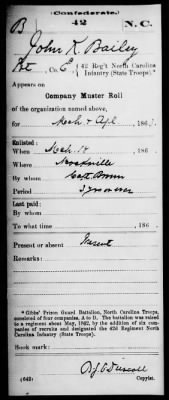 (Confederate.)
B 42 N.C.
John K. Bailey
Pvt, Co. E, 42 Reg't North Carolina
Infantry (State Troops).*
Appears on
Company Muster Roll
of the organization named above,
for Mch & Apl, 186
Enlisted:
When Mch. 18, 186
Where Mocksville
By whom Capt. Brown
Period 3 yrs or war
Last paid:
By whom
To what time , 186 .
Present or absent Present
Remarks:
* Gibbs' Prison Guard Battalion, North Carolina Troops,
consisted of four companies, A to D. The battalion was raised
to a regiment about May, 1862, by the addition of six com-
panies of recruits and designated the 42d Regiment North
Carolina Infantry (State Troops).
Book mark:
(642) Copyist.